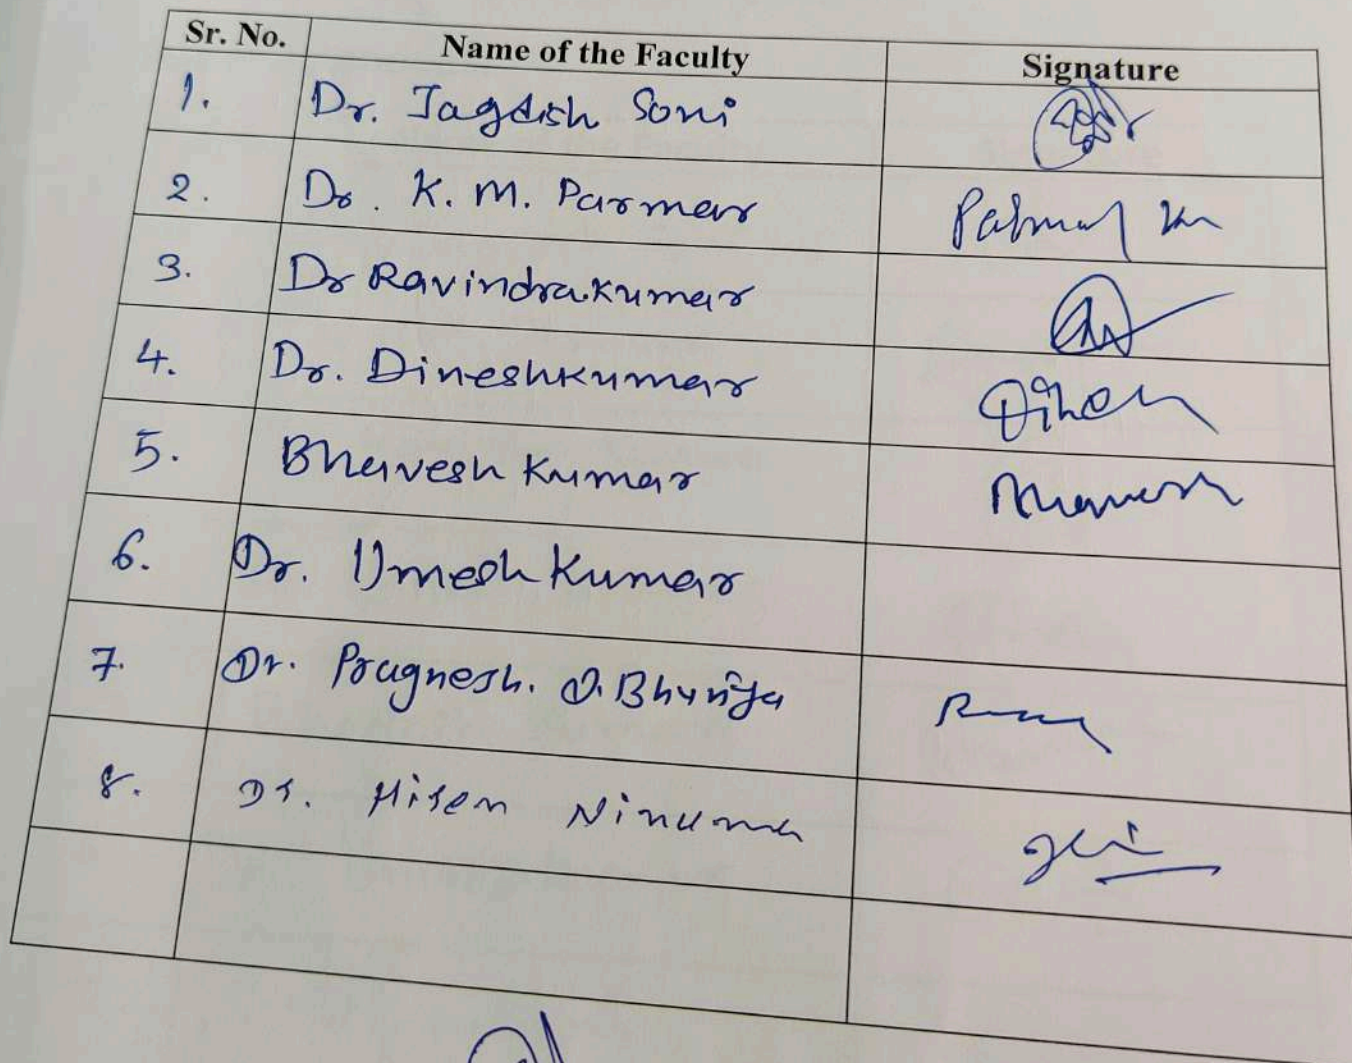 Sr. No. Name of the Faculty Signature
1. Dr. Jagdish Soni
2. Dr. K. M. Parmar Parmar Km
3. Dr Ravindrakumar
4. Dr. Dineshkumar Dinesh
5. Bhavesh Kumar Bhavesh
6. Dr. Umesh Kumar
7. Dr. Pragnesh. D. Bhuriya
8. Dr. Hiren Ninama